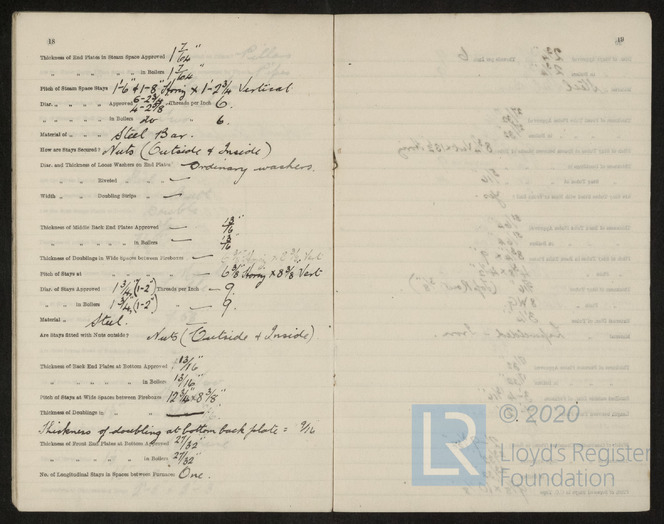 18
Thickness of End Plates in Steam Space Approved 1 7/64"
„ „ „ „ „ in Boilers 1 7/64"
Pitch of Steam Space Stays 1'-6" & 1'-8" Horiz x 1'-2 3/4" Vertical
Diar. „ „ „ Approved 6-2 3/4" 4-2 7/8" Threads per Inch 6.
„ „ „ „ in Boilers do „ 6.
Material of „ „ Steel Bar.
How are Stays Secured? Nuts (Outside & Inside)
Diar. and Thickness of Loose Washers on End Plates — Ordinary washers.
„ „ „ Riveted „ —
Width „ „ Doubling Strips „ —
Thickness of Middle Back End Plates Approved 13/16"
„ „ „ „ „ in Boilers 13/16"
Thickness of Doublings in Wide Spaces between Fireboxes —
Pitch of Stays at „ „ „ 6 3/8" Horiz x 8 3/8" Vert
Diar. of Stays Approved 1 3/4", (1-2") Threads per Inch — 9.
„ „ in Boilers 1 3/4", (1-2") „ — 9.
Material „ Steel. —
Are Stays fitted with Nuts outside? Nuts (Outside & Inside)
Thickness of Back End Plates at Bottom Approved 13/16"
„ „ „ „ „ in Boilers 13/16"
Pitch of Stays at Wide Spaces between Fireboxes 12 3/4" x 8 3/8"
Thickness of Doublings in „ „ —
Thickness of doubling at bottom back plate = 9/16
Thickness of Front End Plates at Bottom Approved 27/32"
„ „ „ „ „ in Boilers 27/32"
No. of Longitudinal Stays in Spaces between Furnaces One.
19
© 2020
LR
Lloyd's Register
Foundation